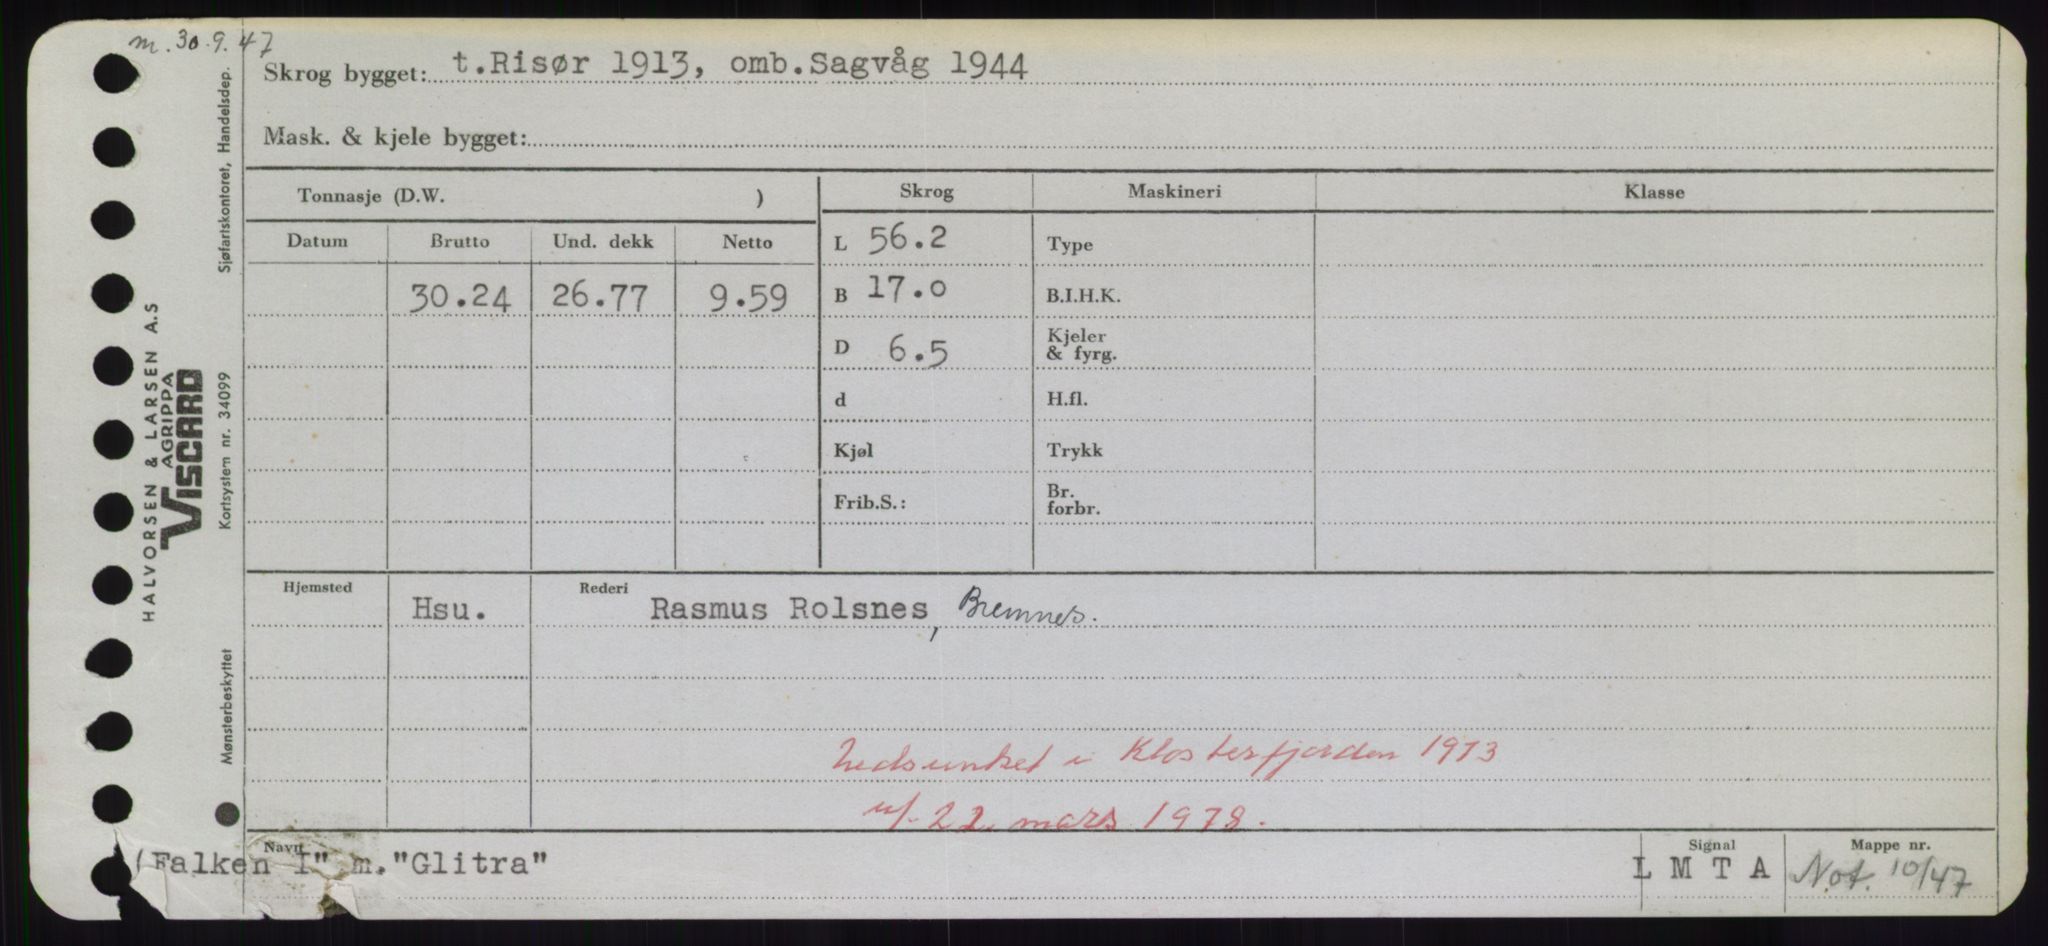 m. 30.9.47
Skrog bygget: t.Risør 1913, omb.Sagvåg 1944
Mask. & kjele bygget:
Tonnasje (D.W. ) Skrog Maskineri Klasse
Datum Brutto Und. dekk Netto L 56.2 Type
30.24 26.77 9.59 B 17.0 B.I.H.K.
D 6.5 Kjeler
& fyrg.
d H.fl.
Kjøl Trykk
Frib.S.: Br.
forbr.
Hjemsted Hsu. Rederi Rasmus Rolsnes, Bremnes.
Nedsunket i Klosterfjorden 1973
u/. 22. mars 1978.
Navn Signal Mappe nr.
(Falken I" m."Glitra" L M T A Not. 10/47
HALVORSEN & LARSEN A.S
AGRIPPA
VISCARD
Sjøfartskontoret, Handelsdep.
Kortsystem nr. 34099
Mønsterbeskyttet